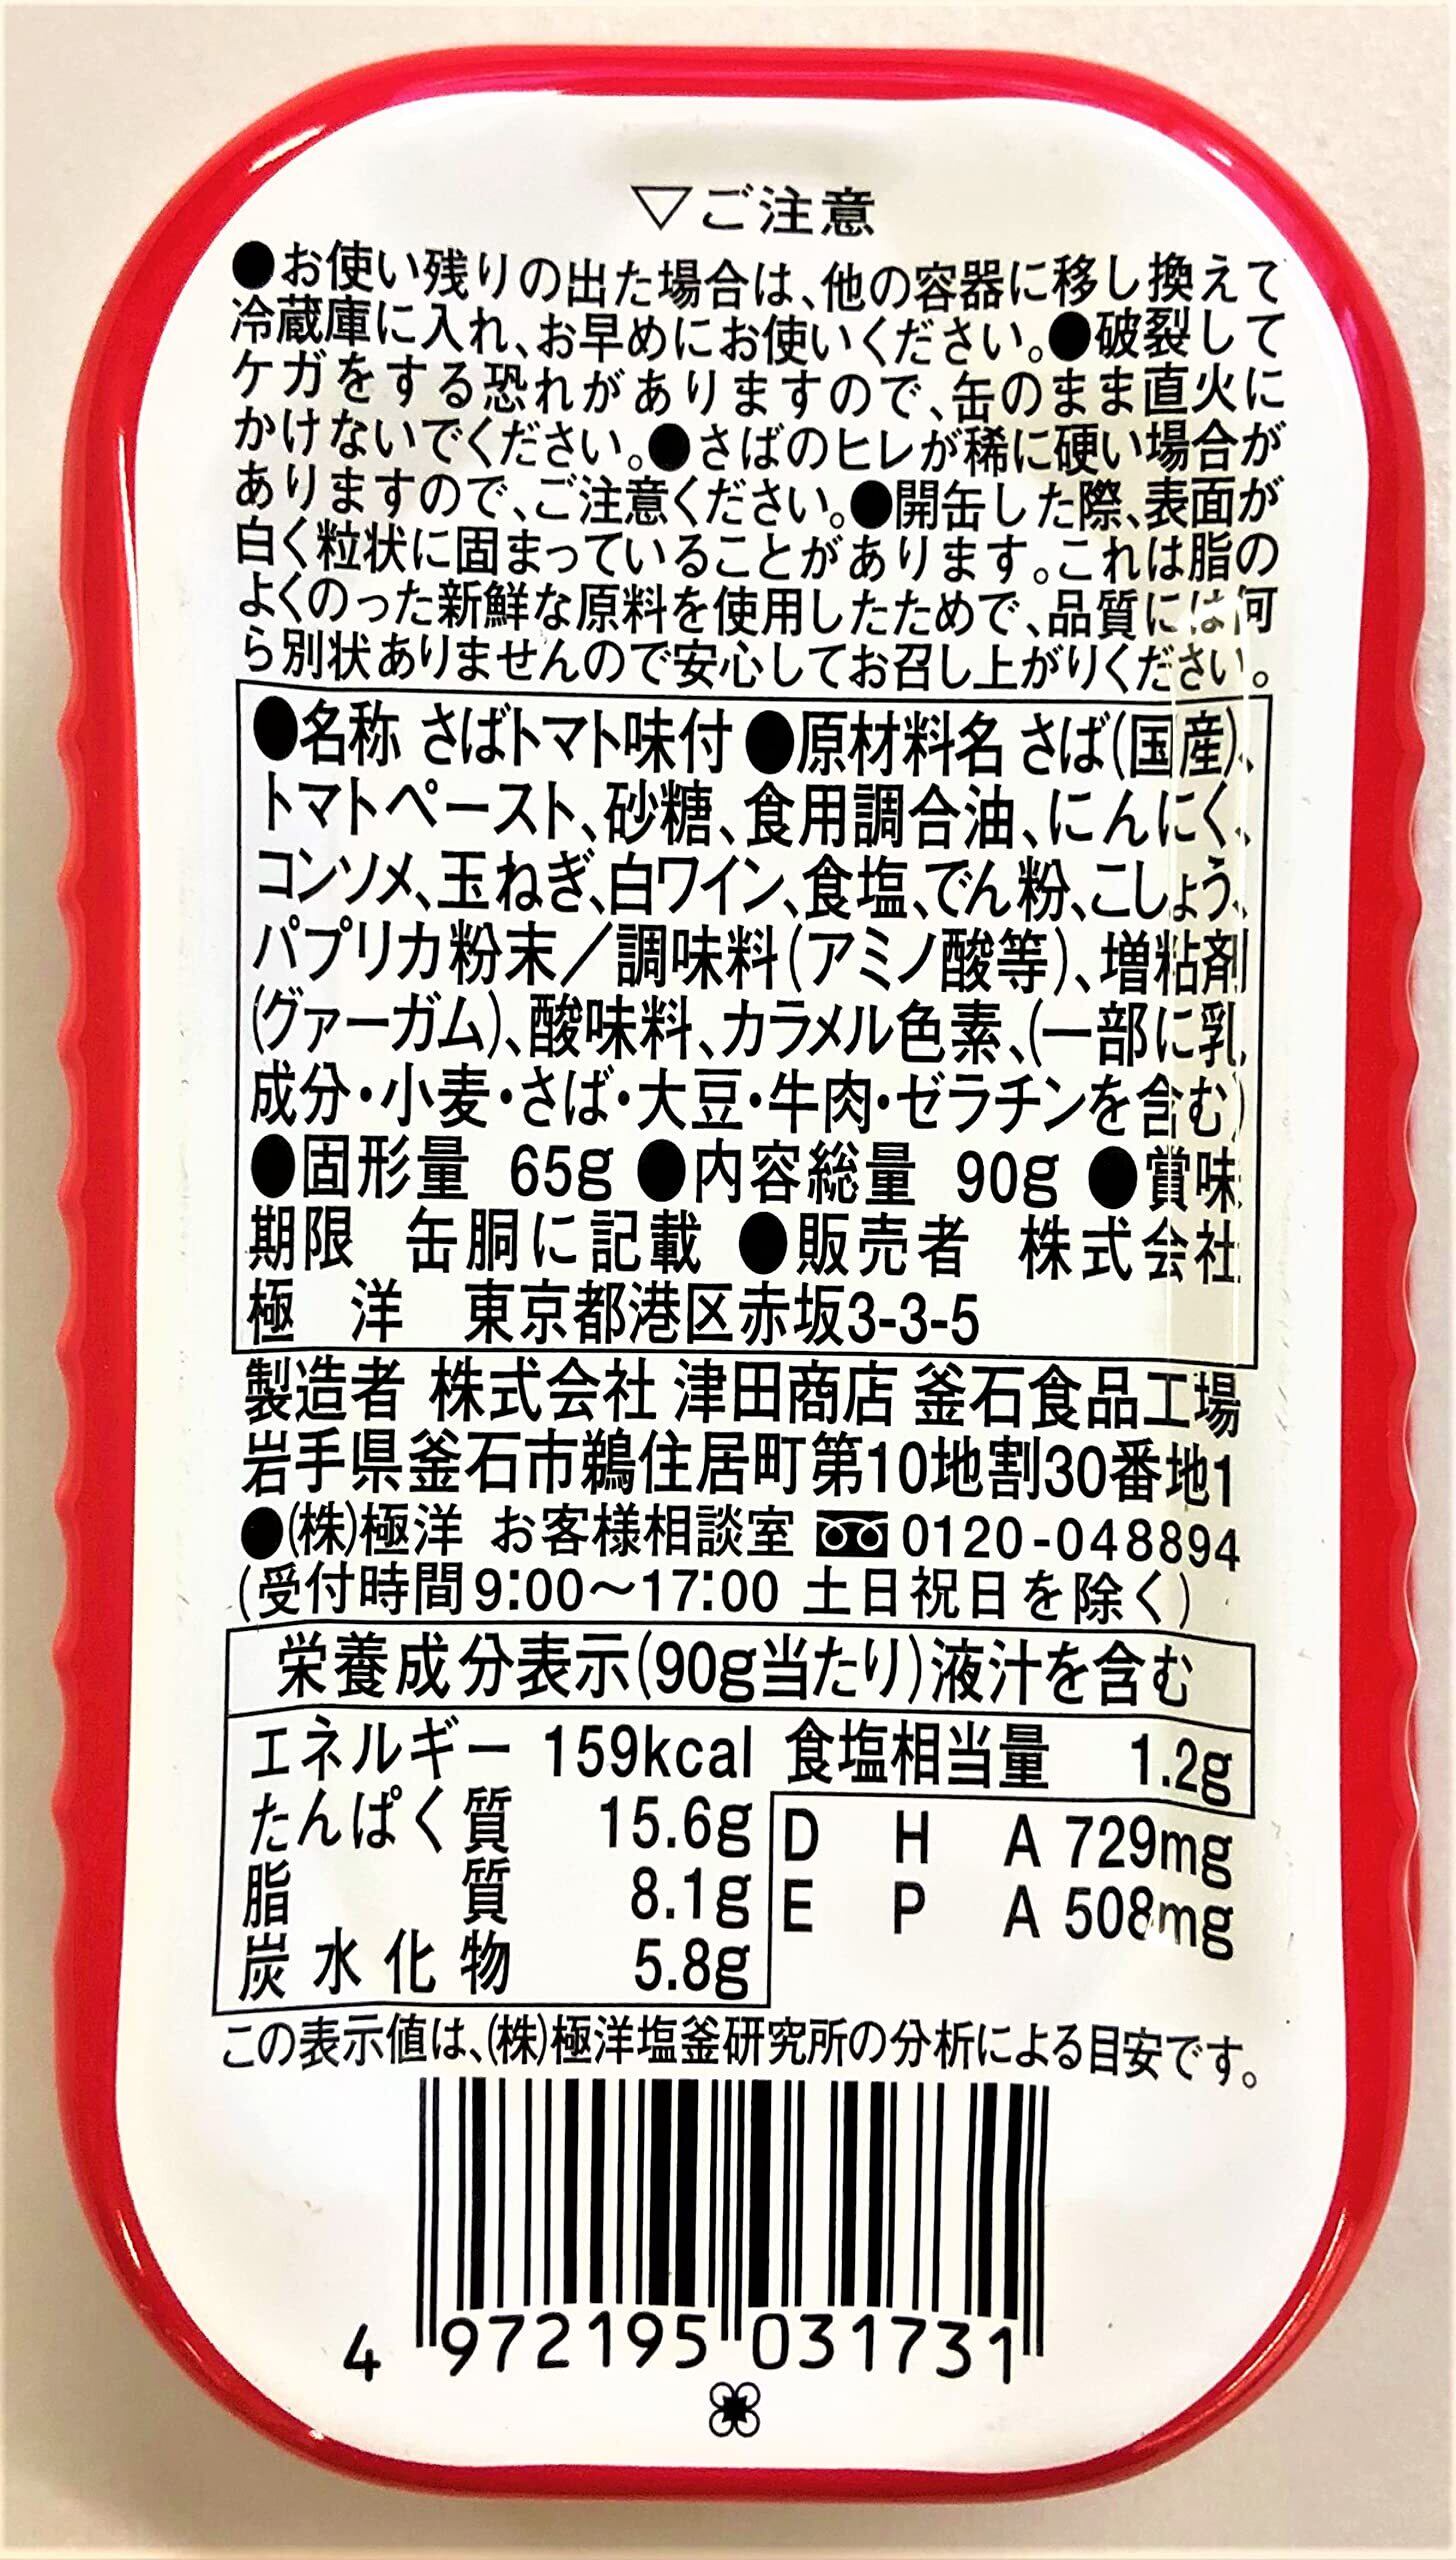 ▽ご注意
●お使い残りの出た場合は、他の容器に移し換えて
冷蔵庫に入れ、お早めにお使いください。●破裂して
ケガをする恐れがありますので、缶のまま直火に
かけないでください。●さばのヒレが稀に硬い場合が
ありますので、ご注意ください。●開缶した際、表面が
白く粒状に固まっていることがあります。これは脂の
よくのった新鮮な原料を使用したためで、品質には何
ら別状ありませんので安心してお召し上がりください。
●名称 さばトマト味付 ●原材料名 さば(国産)、
トマトペースト、砂糖、食用調合油、にんにく、
コンソメ、玉ねぎ、白ワイン、食塩、でん粉、こしょう、
パプリカ粉末／調味料(アミノ酸等)、増粘剤
(グァーガム)、酸味料、カラメル色素、(一部に乳
成分・小麦・さば・大豆・牛肉・ゼラチンを含む)
●固形量 65g ●内容総量 90g ●賞味
期限 缶胴に記載 ●販売者 株式会社
極 洋 東京都港区赤坂3-3-5
製造者 株式会社 津田商店 釜石食品工場
岩手県釜石市鵜住居町第10地割30番地1
●(株)極洋 お客様相談室 0120-048894
(受付時間9:00〜17:00 土日祝日を除く)
栄養成分表示(90g当たり)液汁を含む
エネルギー 159kcal 食塩相当量 1.2g
たんぱく質 15.6g D H A 729mg
脂 質 8.1g E P A 508mg
炭水化物 5.8g
この表示値は、(株)極洋塩釜研究所の分析による目安です。
4 972195 031731